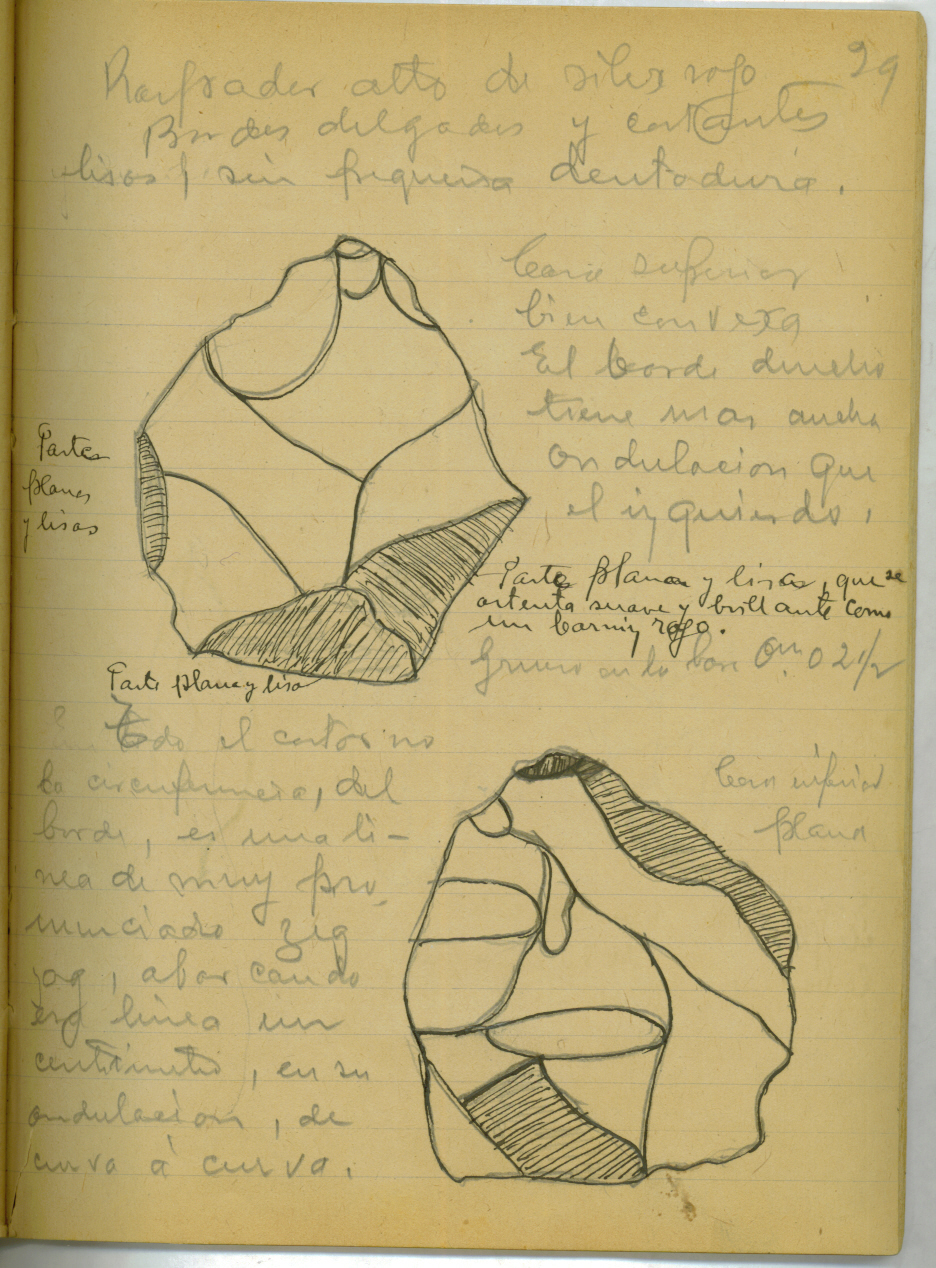 29
Raspador alto de silex rojo
Bordes delgados y cortantes
lisos, sin pequeña dentadura.
Cara superior
bien convexa
El borde derecho
tiene mas ancha
ondulacion que
el izquierdo,
Partes
planas
y lisas
Partes planas y lisas, que se
ostenta suave y brillante como
un barniz rojo.
Grueso en la base 0m. 02 1/2
Parte plana y lisa
En todo el contorno
la circunferencia, del
borde, es una li-
nea de muy pro
nunciado zig
zag, abarcando
esa linea un
centimetro, en su
ondulacion, de
curva á curva.
Cara inferior
plana